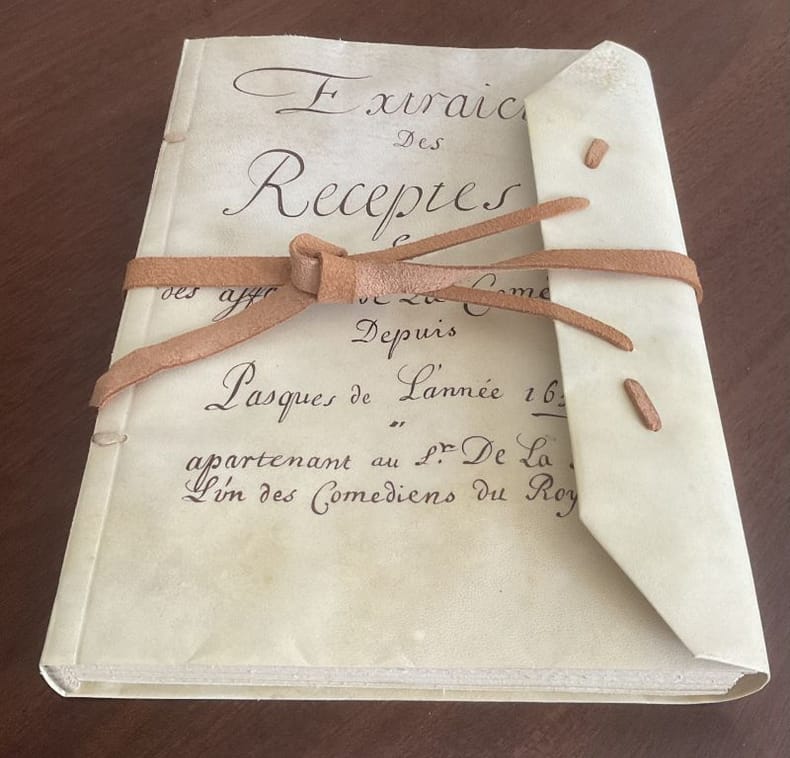 Extraict
Des
Receptes
des affa La Come
Depuis
Pasques de L'année 16
apartenant au Sr. De La
L'un des Comediens du Roy